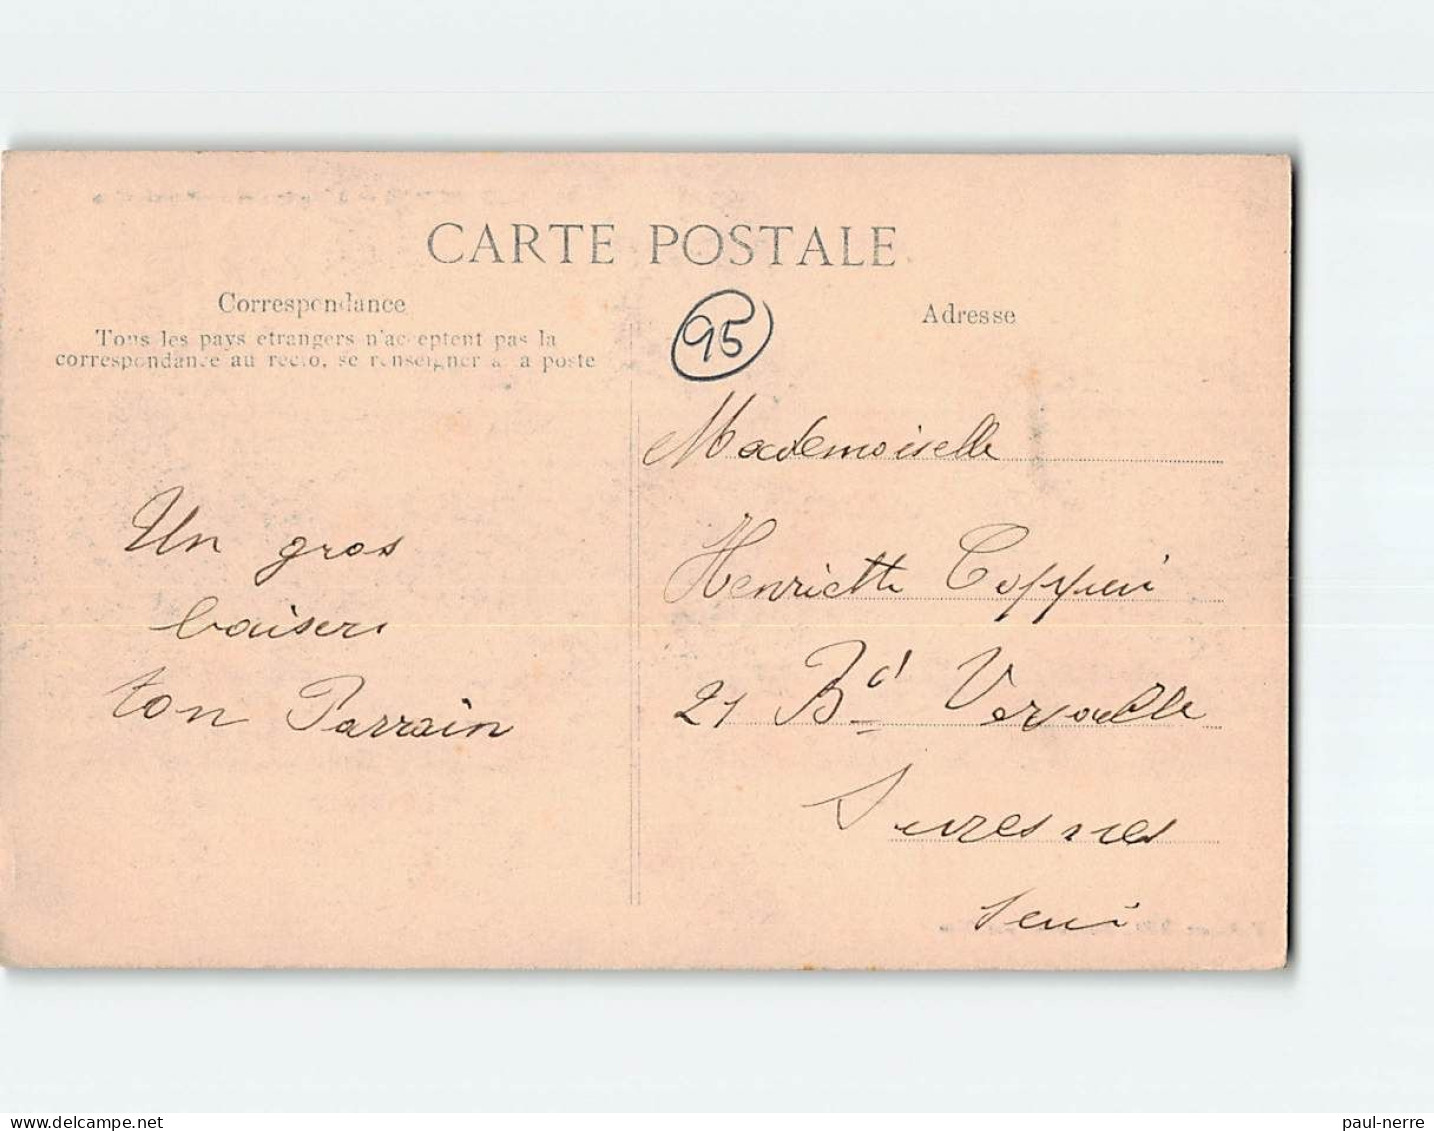 CARTE POSTALE
Correspondance
Tous les pays etrangers n'acceptent pas la
correspondance au recto, se renseigner a la poste
Adresse
95
Un gros
baisers
ton Parrain
Mademoiselle
Henriette
21 Bd Versaille
Suresnes
Seine
delcampe.net
paul-nerre